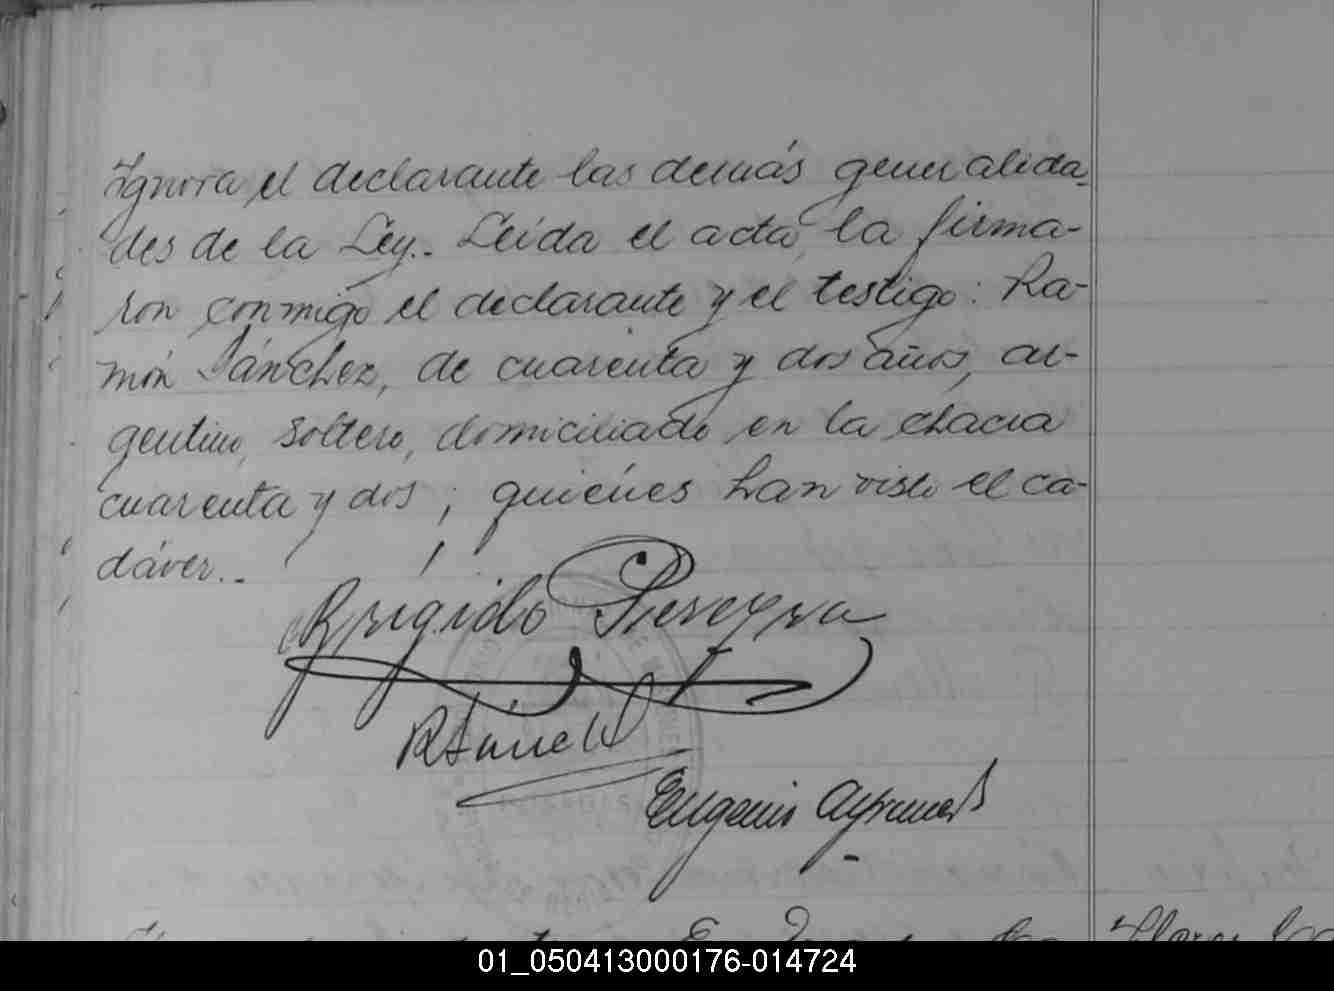 Ignora el declarante las demás generalida-
des de la Ley.. Leída el acta, la firma-
ron conmigo el declarante y el testigo: Ra-
món Sánchez, de cuarenta y dos años, ar-
gentino, soltero, domiciliado en la chacra
cuarenta y dos; quiénes han visto el ca-
dáver..
Brígido Pereyra
Eugenio
01_050413000176-014724